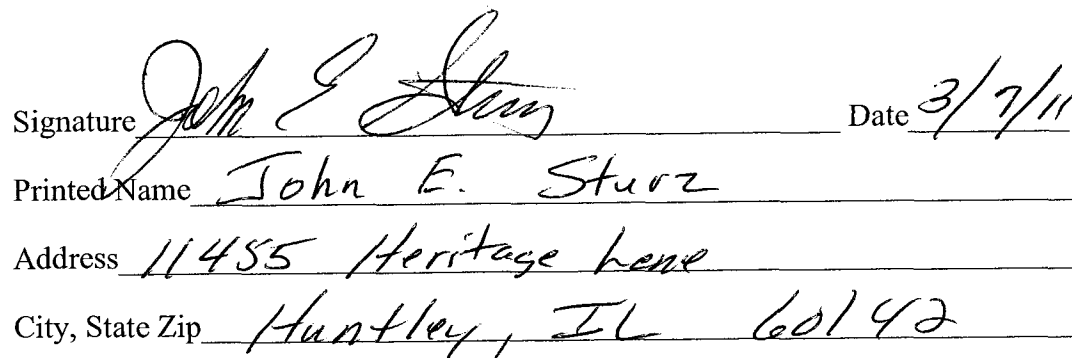 Signature John E Sturz Date 3/7/11
Printed Name John E. Sturz
Address 11455 Heritage Lane
City, State Zip Huntley, IL 60142